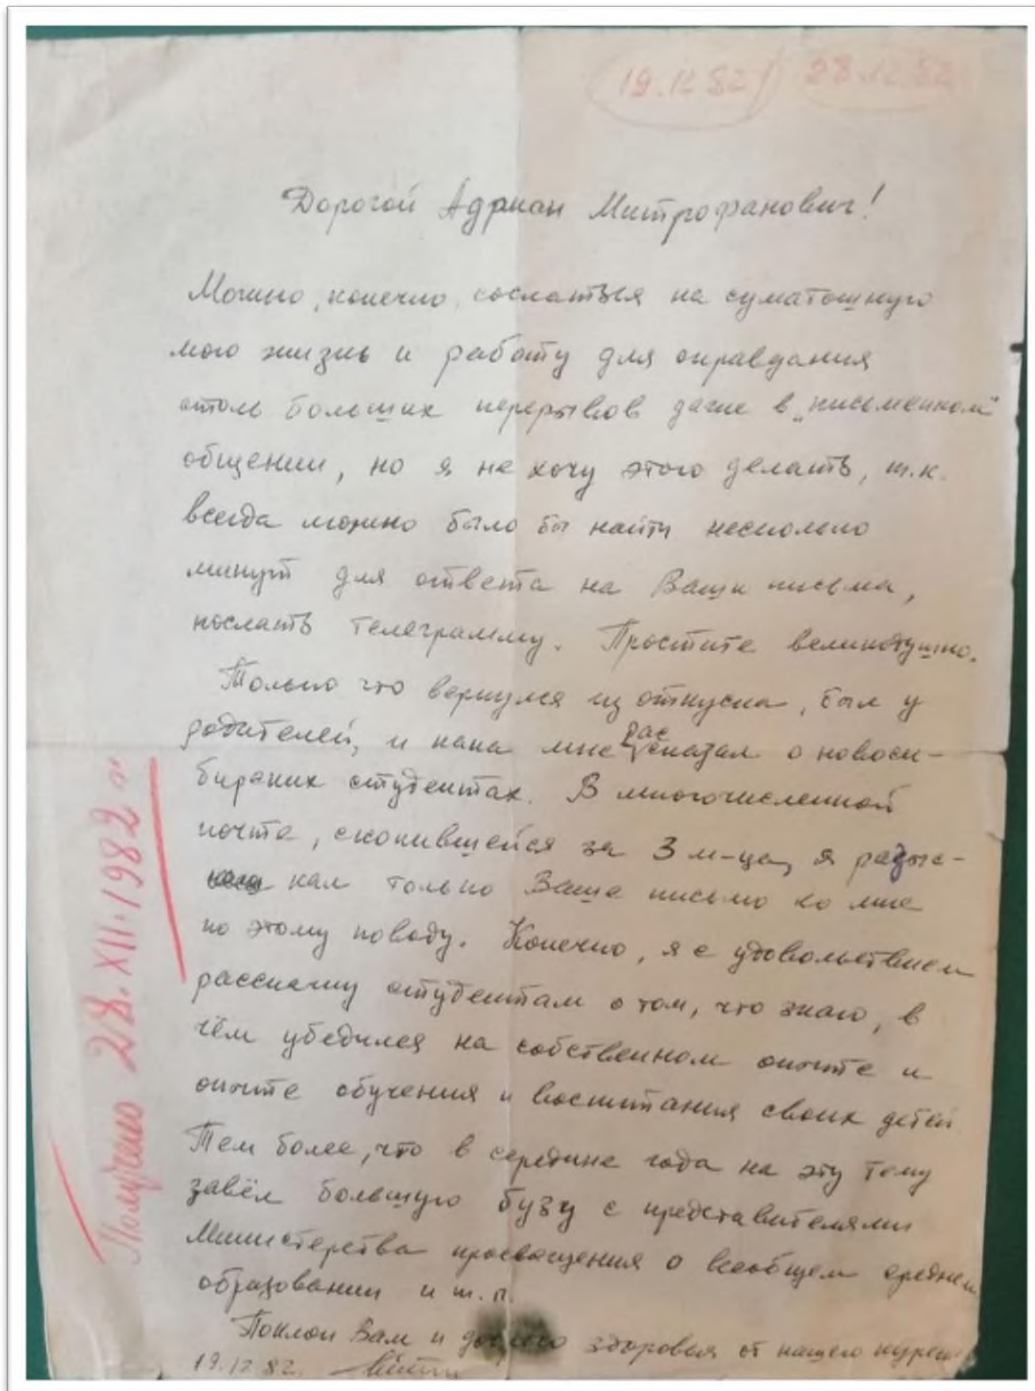 19.12.82 28.12.82
Дорогой Адриан Митрофанович!
Можно, конечно, сослаться на суматошную
мою жизнь и работу для оправдания
столь больших перерывов даже в „письменном"
общении, но я не хочу этого делать, т.к.
всегда можно было бы найти несколько
минут для ответа на Ваши письма,
послать телеграмму. Простите великодушно.
Только что вернулся из отпуска, был у
родителей, и папа мне рассказал о новоси-
бирских студентах. В многочисленной
почте, скопившейся за 3 м-ца, я разыс-
кал только Ваше письмо ко мне
по этому поводу. Конечно, я с удовольствием
расскажу студентам о том, что знаю, в
чём убедился на собственном опыте и
опыте обучения и воспитания своих детей.
Тем более, что в середине года на эту тему
завёл большую бузу с представителями
Министерства просвещения о всеобщем среднем
образовании и т.п.
Поклон Вам и доброго здоровья от нашего куреня
19.12.82.
Получено 28.XII.1982 г.